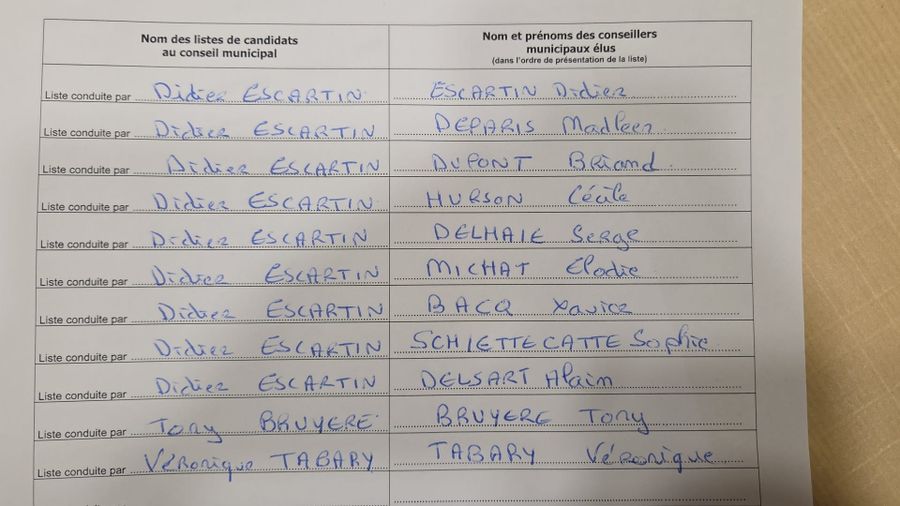 Nom des listes de candidats
au conseil municipal
Nom et prénoms des conseillers
municipaux élus
(dans l'ordre de présentation de la liste)
Liste conduite par Didier ESCARTIN ESCARTIN Didier
Liste conduite par Didier ESCARTIN DEPARIS Madleen
Liste conduite par Didier ESCARTIN DUPONT Briand
Liste conduite par Didier ESCARTIN HURSON Cécile
Liste conduite par Didier ESCARTIN DELHAIE Serge
Liste conduite par Didier ESCARTIN MICHAT Elodie
Liste conduite par Didier ESCARTIN BACQ Xavier
Liste conduite par Didier ESCARTIN SCHIETTECATTE Sophie
Liste conduite par Didier ESCARTIN DELSART Alain
Liste conduite par Tony BRUYERE BRUYERE Tony
Liste conduite par Véronique TABARY TABARY Véronique